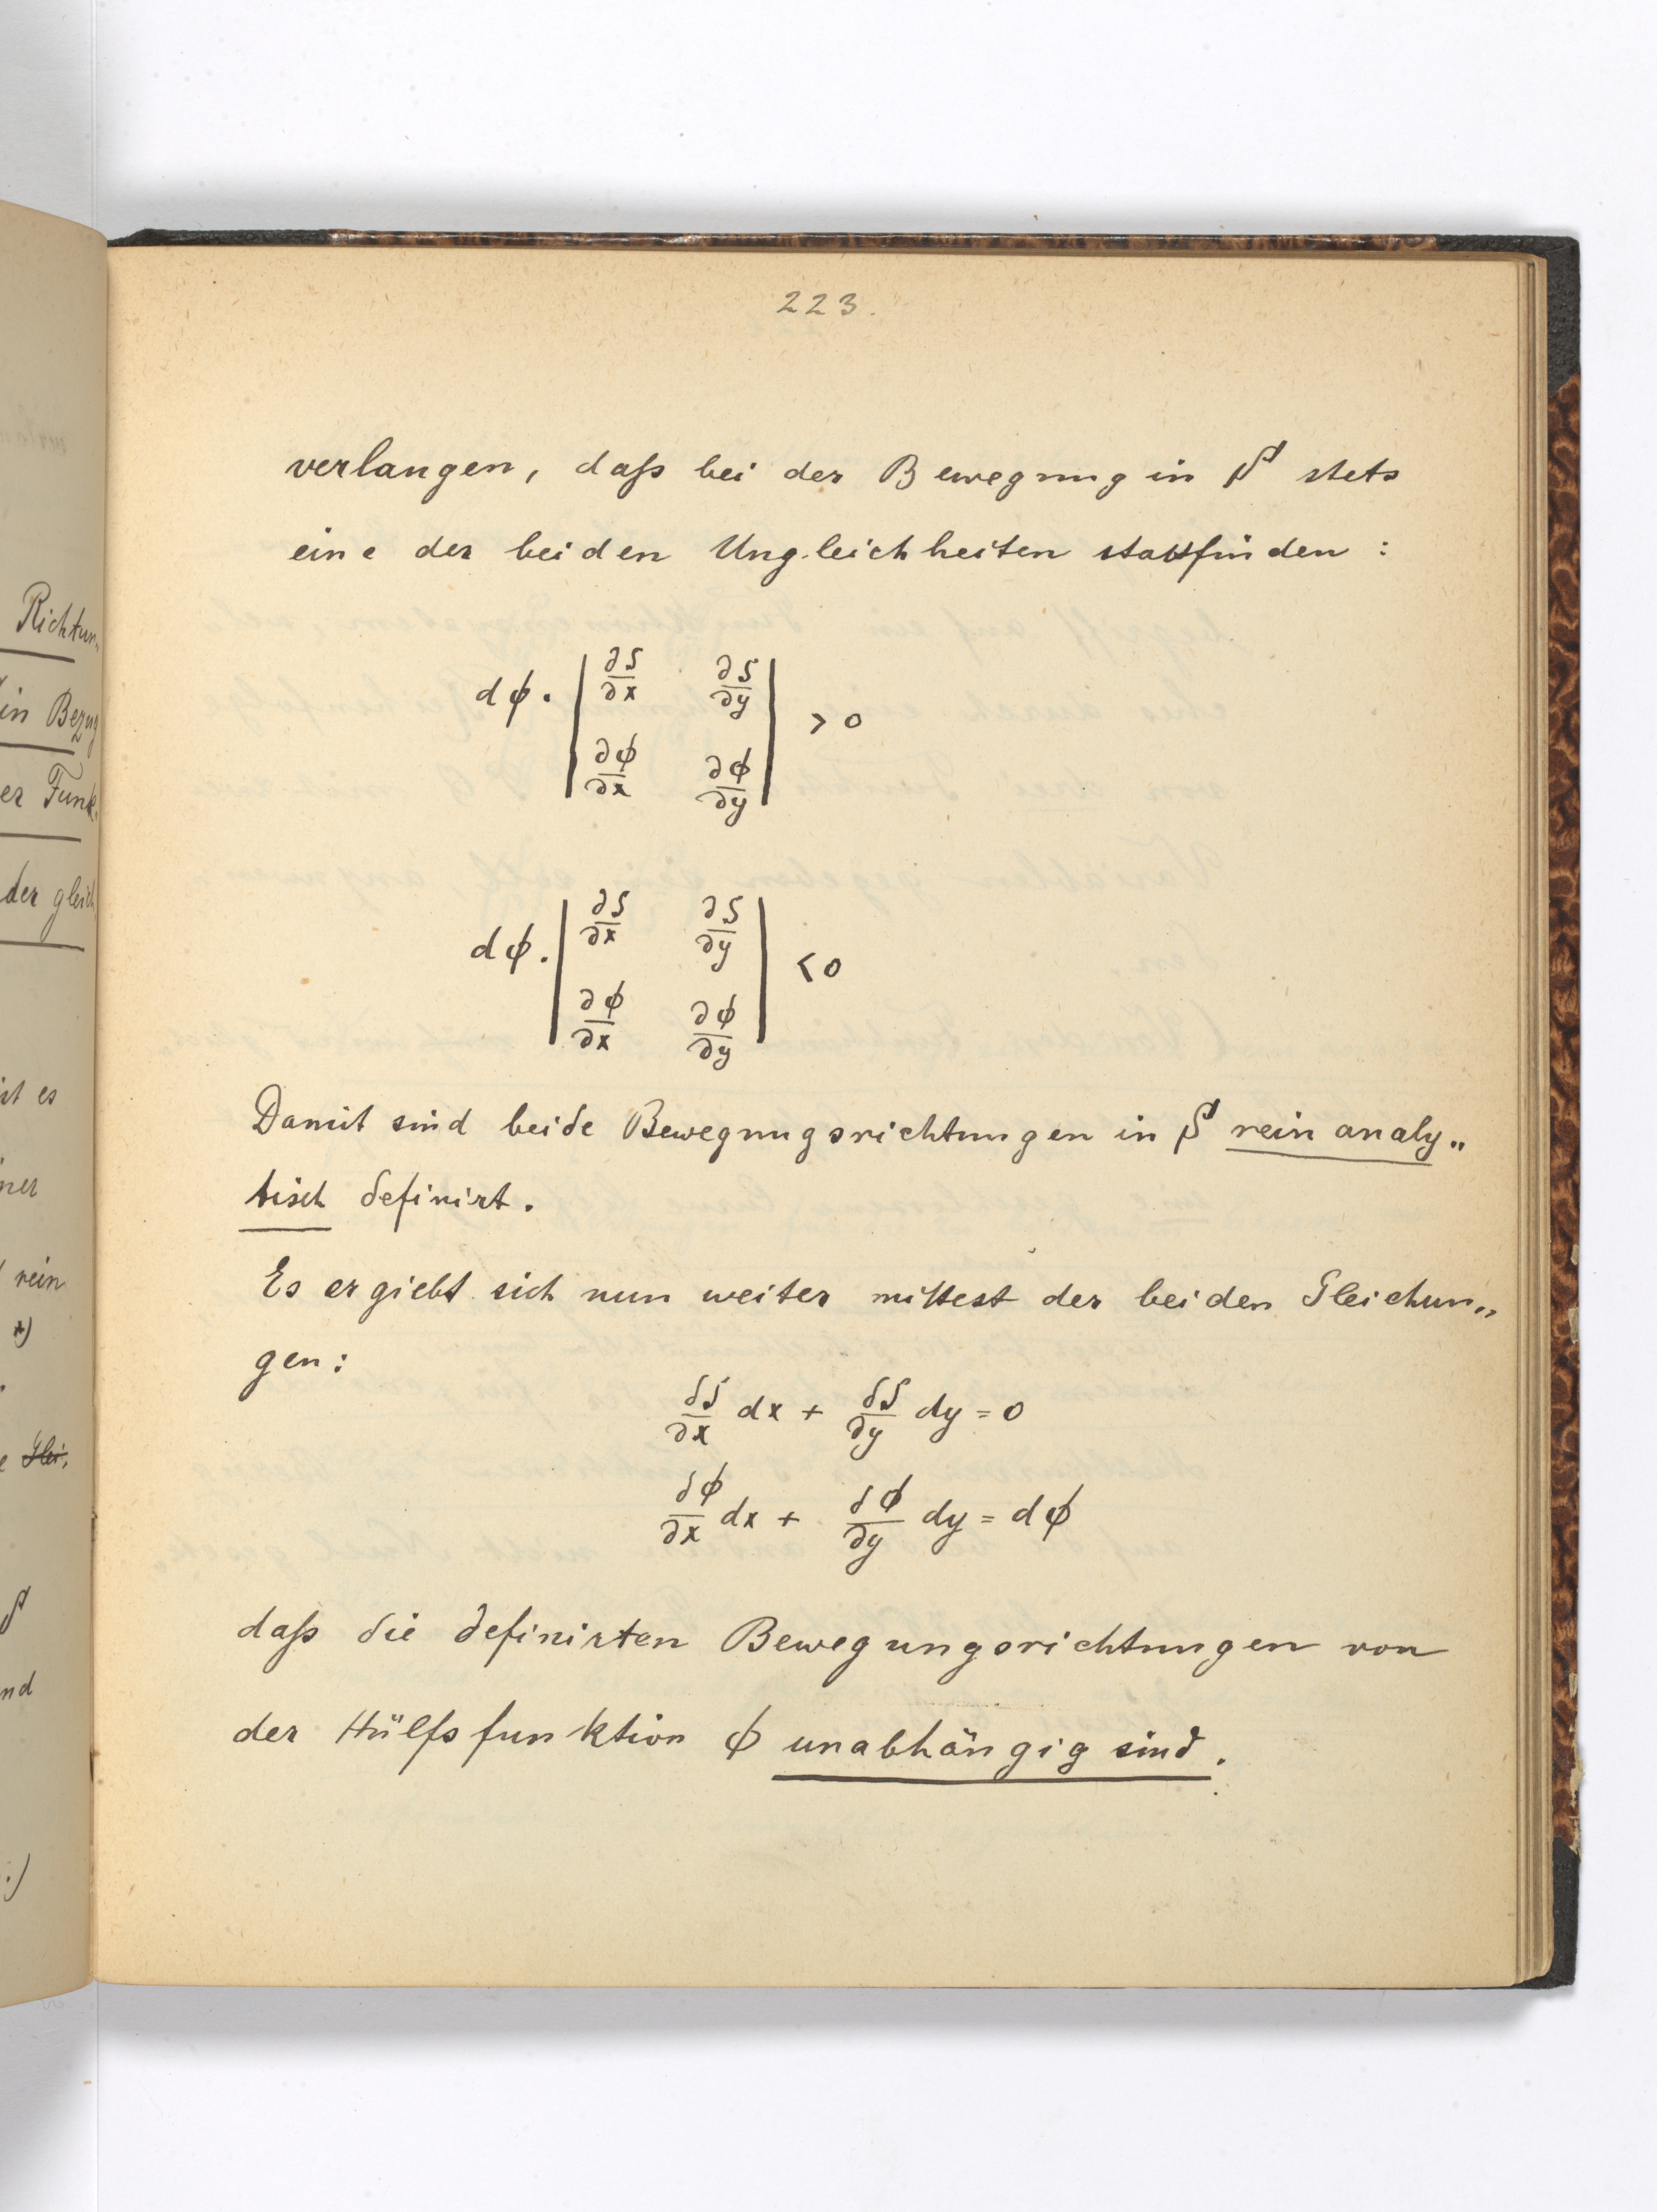 223.
verlangen, daß bei der Bewegung in S stets
eine der beiden Ungleichheiten stattfinden :
dφ · | ∂S/∂x ∂S/∂y ; ∂φ/∂x ∂φ/∂y | > 0
dφ · | ∂S/∂x ∂S/∂y ; ∂φ/∂x ∂φ/∂y | < 0
Damit sind beide Bewegungsrichtungen in S rein analy„
tisch definirt.
Es ergiebt sich nun weiter mittest der beiden Gleichun„
gen:
∂S/∂x dx + ∂S/∂y dy = 0
∂φ/∂x dx + ∂φ/∂y dy = dφ
daß die definirten Bewegungsrichtungen von
der Hülfsfunktion φ unabhängig sind.
Richtun„
in Bezug
er Funk„
der gleich
ist es
iner
rein
*)
Glei„
S
nd
.)